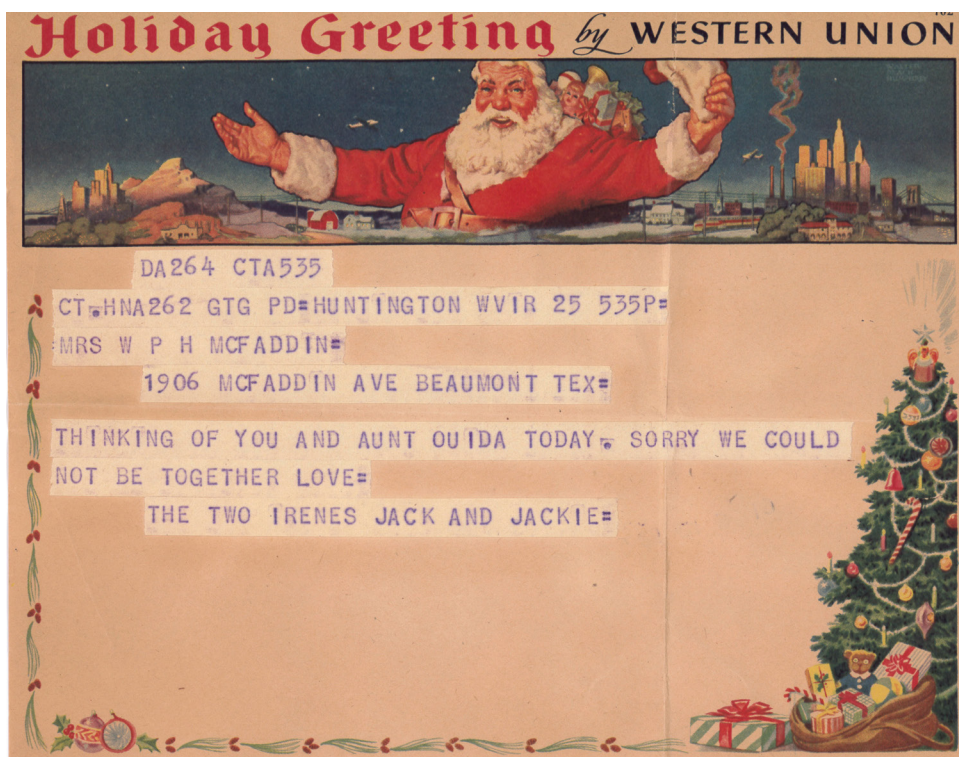 Holiday Greeting by WESTERN UNION
DA264 CTA535
CT.HNA262 GTG PD=HUNTINGTON WVIR 25 535P=
MRS W P H MCFADDIN=
1906 MCFADDIN AVE BEAUMONT TEX=
THINKING OF YOU AND AUNT OUIDA TODAY. SORRY WE COULD
NOT BE TOGETHER LOVE=
THE TWO IRENES JACK AND JACKIE=